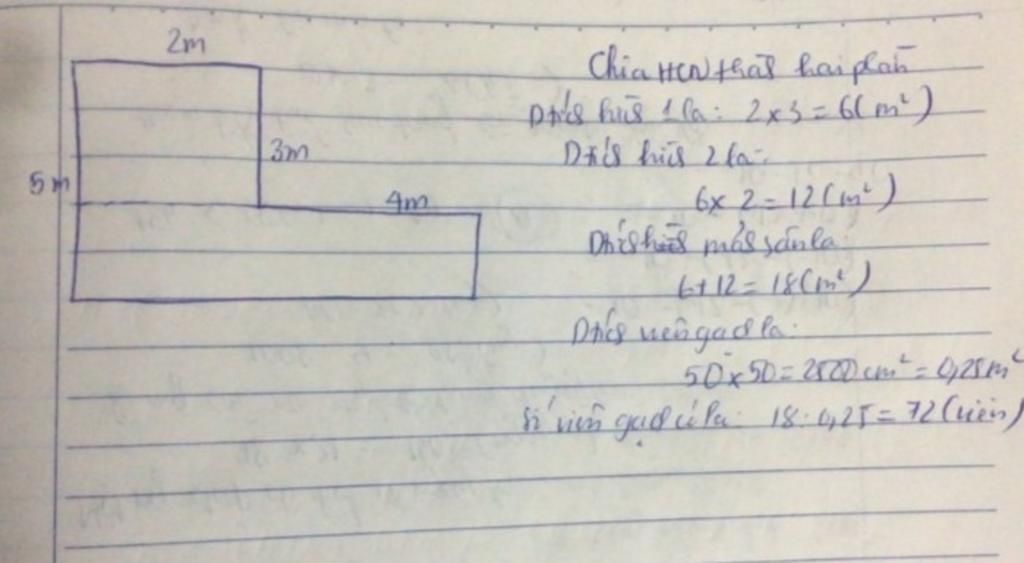 2m
3m
5m
4m
Chia HCN thàh hai phần
Dtích hình 1 là: 2 x 3 = 6(m²)
Dtích hình 2 là:
6 x 2 = 12(m²)
Dtích mảnh sân là:
6 + 12 = 18(m²)
Dtích viên gạch là:
50 x 50 = 2500 cm² = 0,25 m²
Số viên gạch là: 18 : 0,25 = 72 (viên)